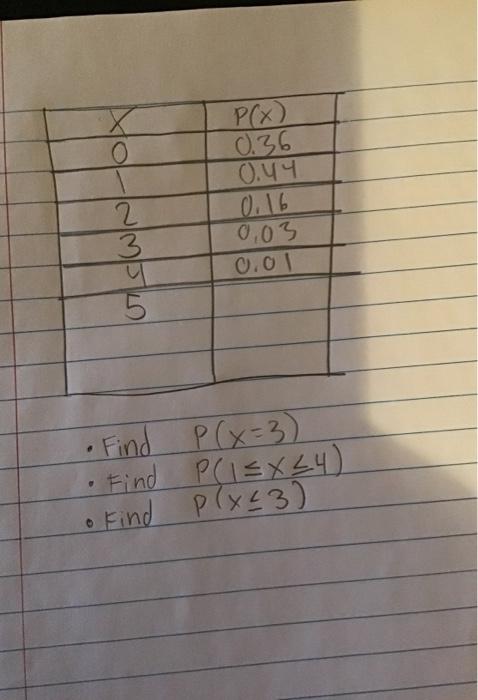 X P(x)
0 0.36
1 0.44
2 0.16
3 0.03
4 0.01
5
• Find P(x=3)
• Find P(1≤x≤4)
• Find P(x≤3)